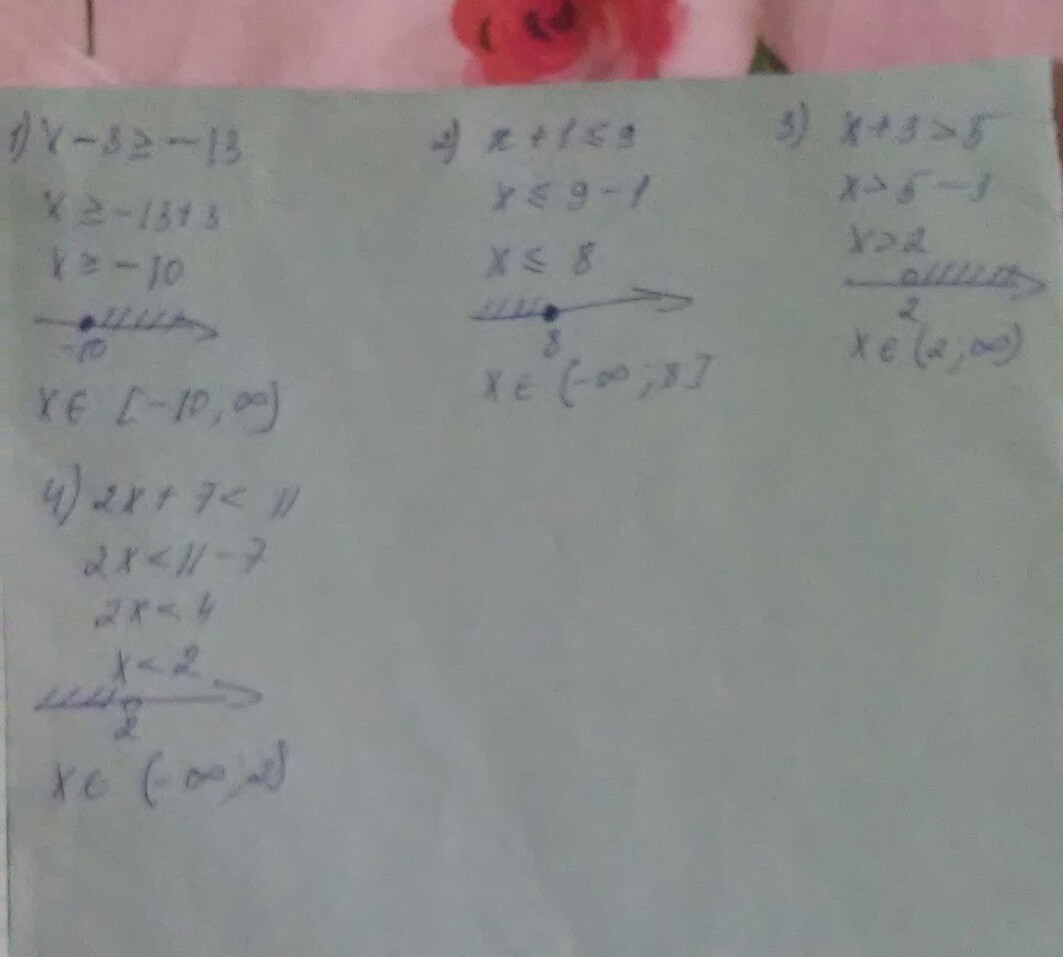 1) x - 3 ≥ - 13
x ≥ - 13 + 3
x ≥ - 10
-10
x ∈ [-10, ∞)
2) x + 1 ≤ 9
x ≤ 9 - 1
x ≤ 8
8
x ∈ (-∞; 8]
3) x + 3 > 5
x > 5 - 3
x > 2
2
x ∈ (2, ∞)
4) 2x + 7 < 11
2x < 11 - 7
2x < 4
x < 2
2
x ∈ (-∞; 2)